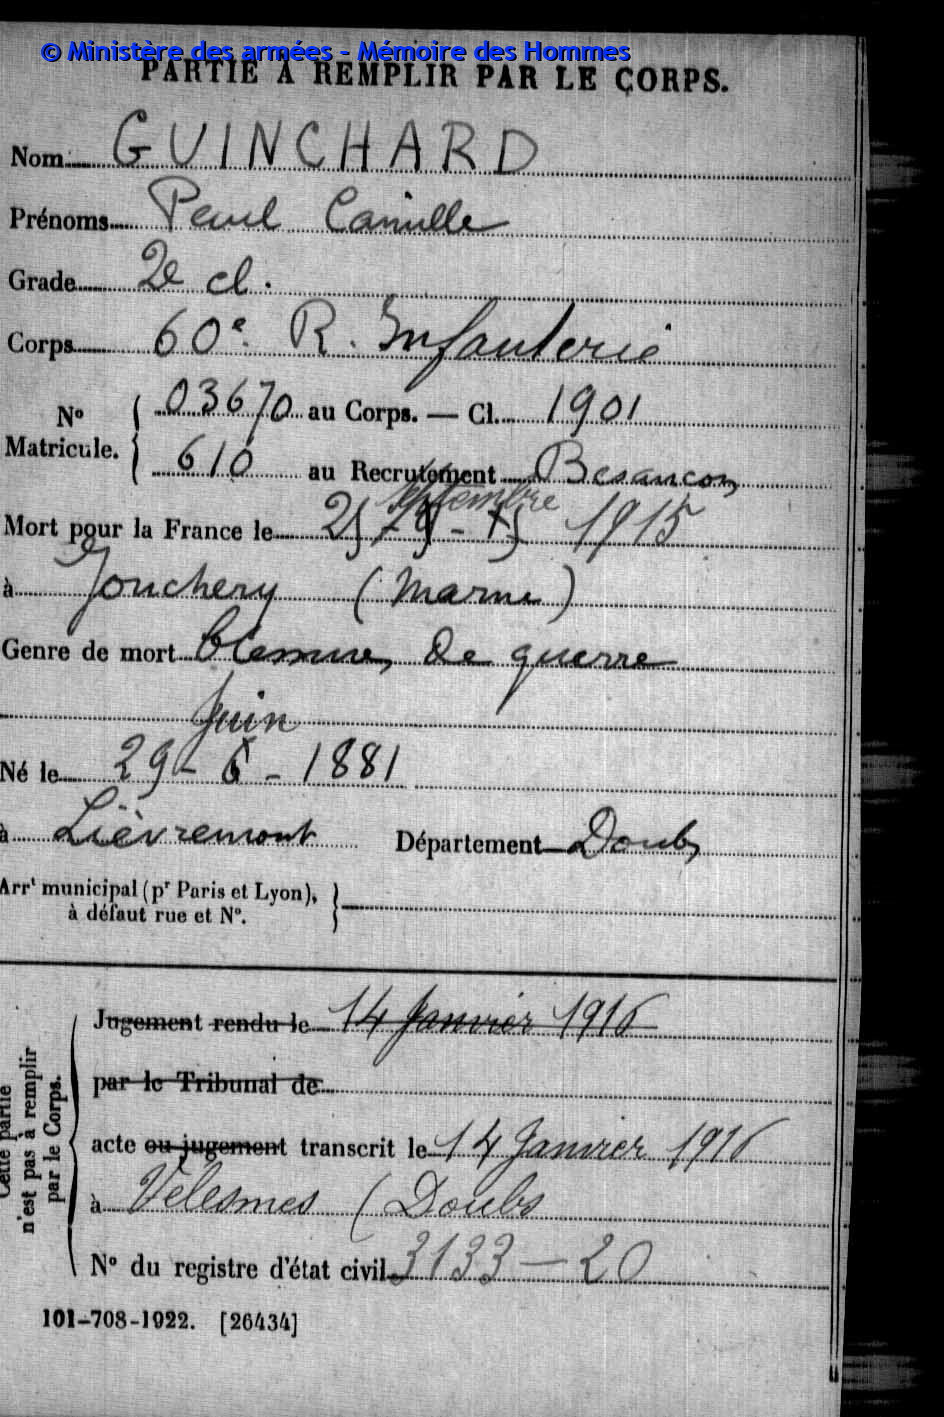 © Ministère des armées - Mémoire des Hommes
PARTIE À REMPLIR PAR LE CORPS.
Nom GUINCHARD
Prénoms Paul Camille
Grade 2e cl.
Corps 60e. R. Infanterie
N° Matricule. { 03670 au Corps. — Cl. 1901
610 au Recrutement Besançon
septembre
Mort pour la France le 25 - 9 - 15 1915
à Jonchery (Marne)
Genre de mort blessures de guerre
Juin
Né le 29 - 6 - 1881
à Lièvremont Département Doubs
Arrt municipal (pr Paris et Lyon), }
à défaut rue et N°.
Cette partie
n'est pas à remplir
par le Corps.
Jugement rendu le 14 Janvier 1916
par le Tribunal de
acte ou jugement transcrit le 14 Janvier 1916
à Vélesmes (Doubs
N° du registre d'état civil 3133 — 20
101-708-1922. [26434]